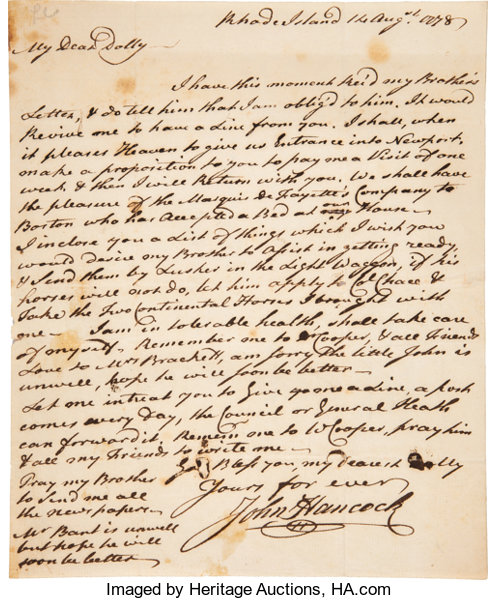 Rhode Island 14 Augst. 1778
My Dear Dolly
I have this moment Rec'd my Brother's
Letter, & do tell him that I am oblig'd to him. It would
Revive me to have a Line from you. I shall, when
it pleases Heaven to give us Entrance into Newport,
make a proposition to you to pay me a Visit of one
week & then I will Return with you. We shall have
the pleasure of the Marquis de Fayette's Company to
Boston who has Accepted a Bed at our House
I inclose you a List of things which I wish you
would desire my Brother to Assist in getting ready,
& Send them by Lusher in the Light Waggon, if his
horses will not do, let him apply to Col Chace &
take the two Continental Horses I brought with
me - I am in tolerable health, shall take care
of myself. Remember me to Dr Cooper, & all Friends
Love to Mrs Brackett, am sorry the little John is
unwell, hope he will soon be better -
Let me intreat you to Give me a Line, a post
comes every Day, the Council or General Heath
can forward it. Remem me to W Cooper, pray him
& all my Friends to write me -
God Bless you, my dearest Dolly
Pray my Brother
to send me all
the newspapers.
Mr Bant is unwell
but hope he will
soon be better
Yours for ever
John Hancock
Imaged by Heritage Auctions, HA.com